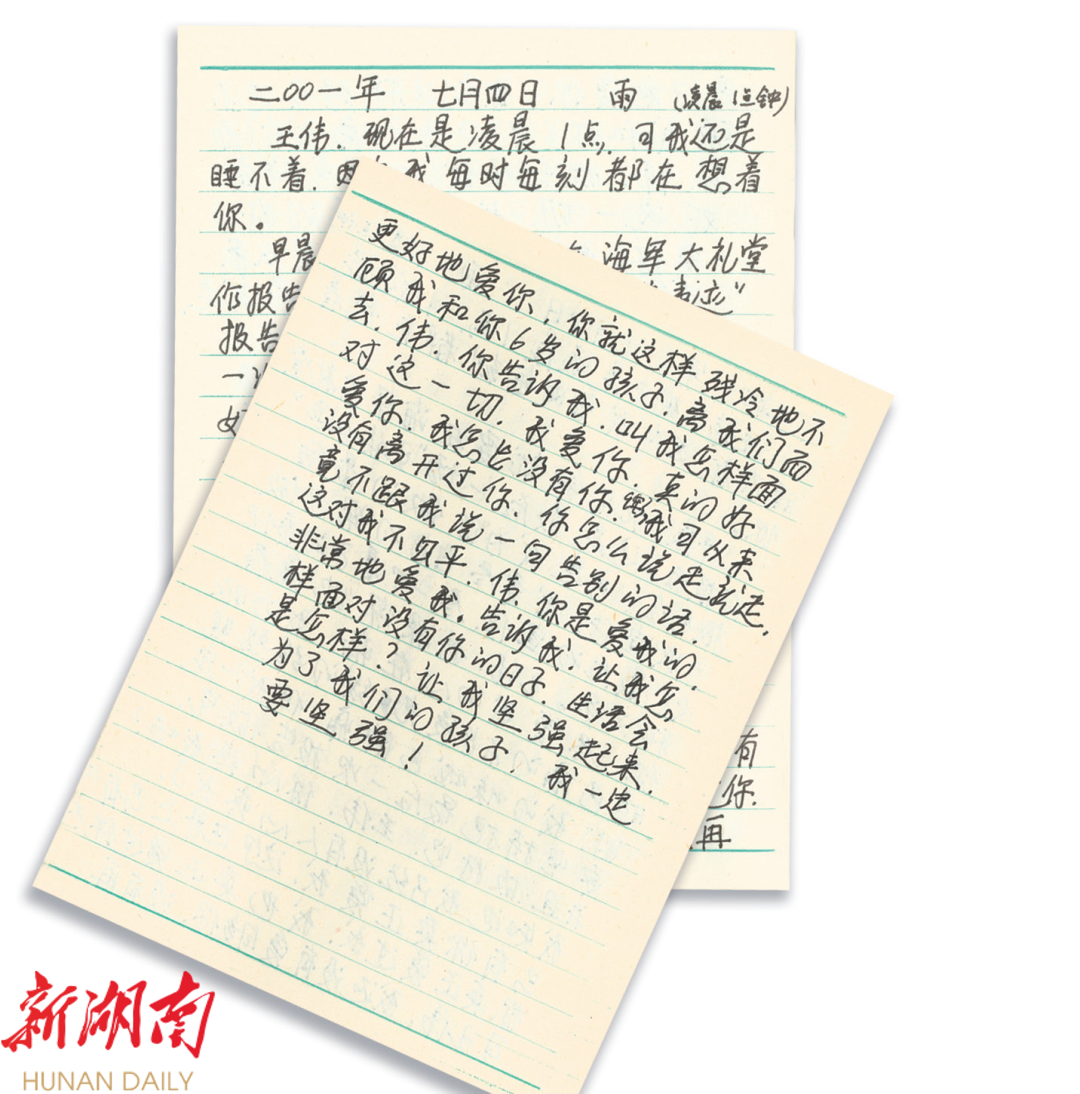 二〇〇一年 七月四日 雨 (凌晨1点钟)
王伟.现在是凌晨1点.可我还是
睡不着. 我每时每刻都在想着
你。
早晨 海军大礼堂
作报告 事迹"
报告
一
好
有
你.
再
更好地爱你,你就这样残冷地不
顾我和你6岁的孩子.离我们而
去.伟.你告诉我.叫我怎样面
对这一切.我爱你.真的好
爱你.我怎么能没有你 我可从来
没有离开过你.你怎么说走就走,
竟不跟我说一句告别的话.
这对我不公平.伟.你是爱我的.
非常地爱我.告诉我.让我怎
样面对没有你的日子.生活会
是怎样?让我坚强起来.
为了我们的孩子.我一定
要坚强!
新湖南
HUNAN DAILY